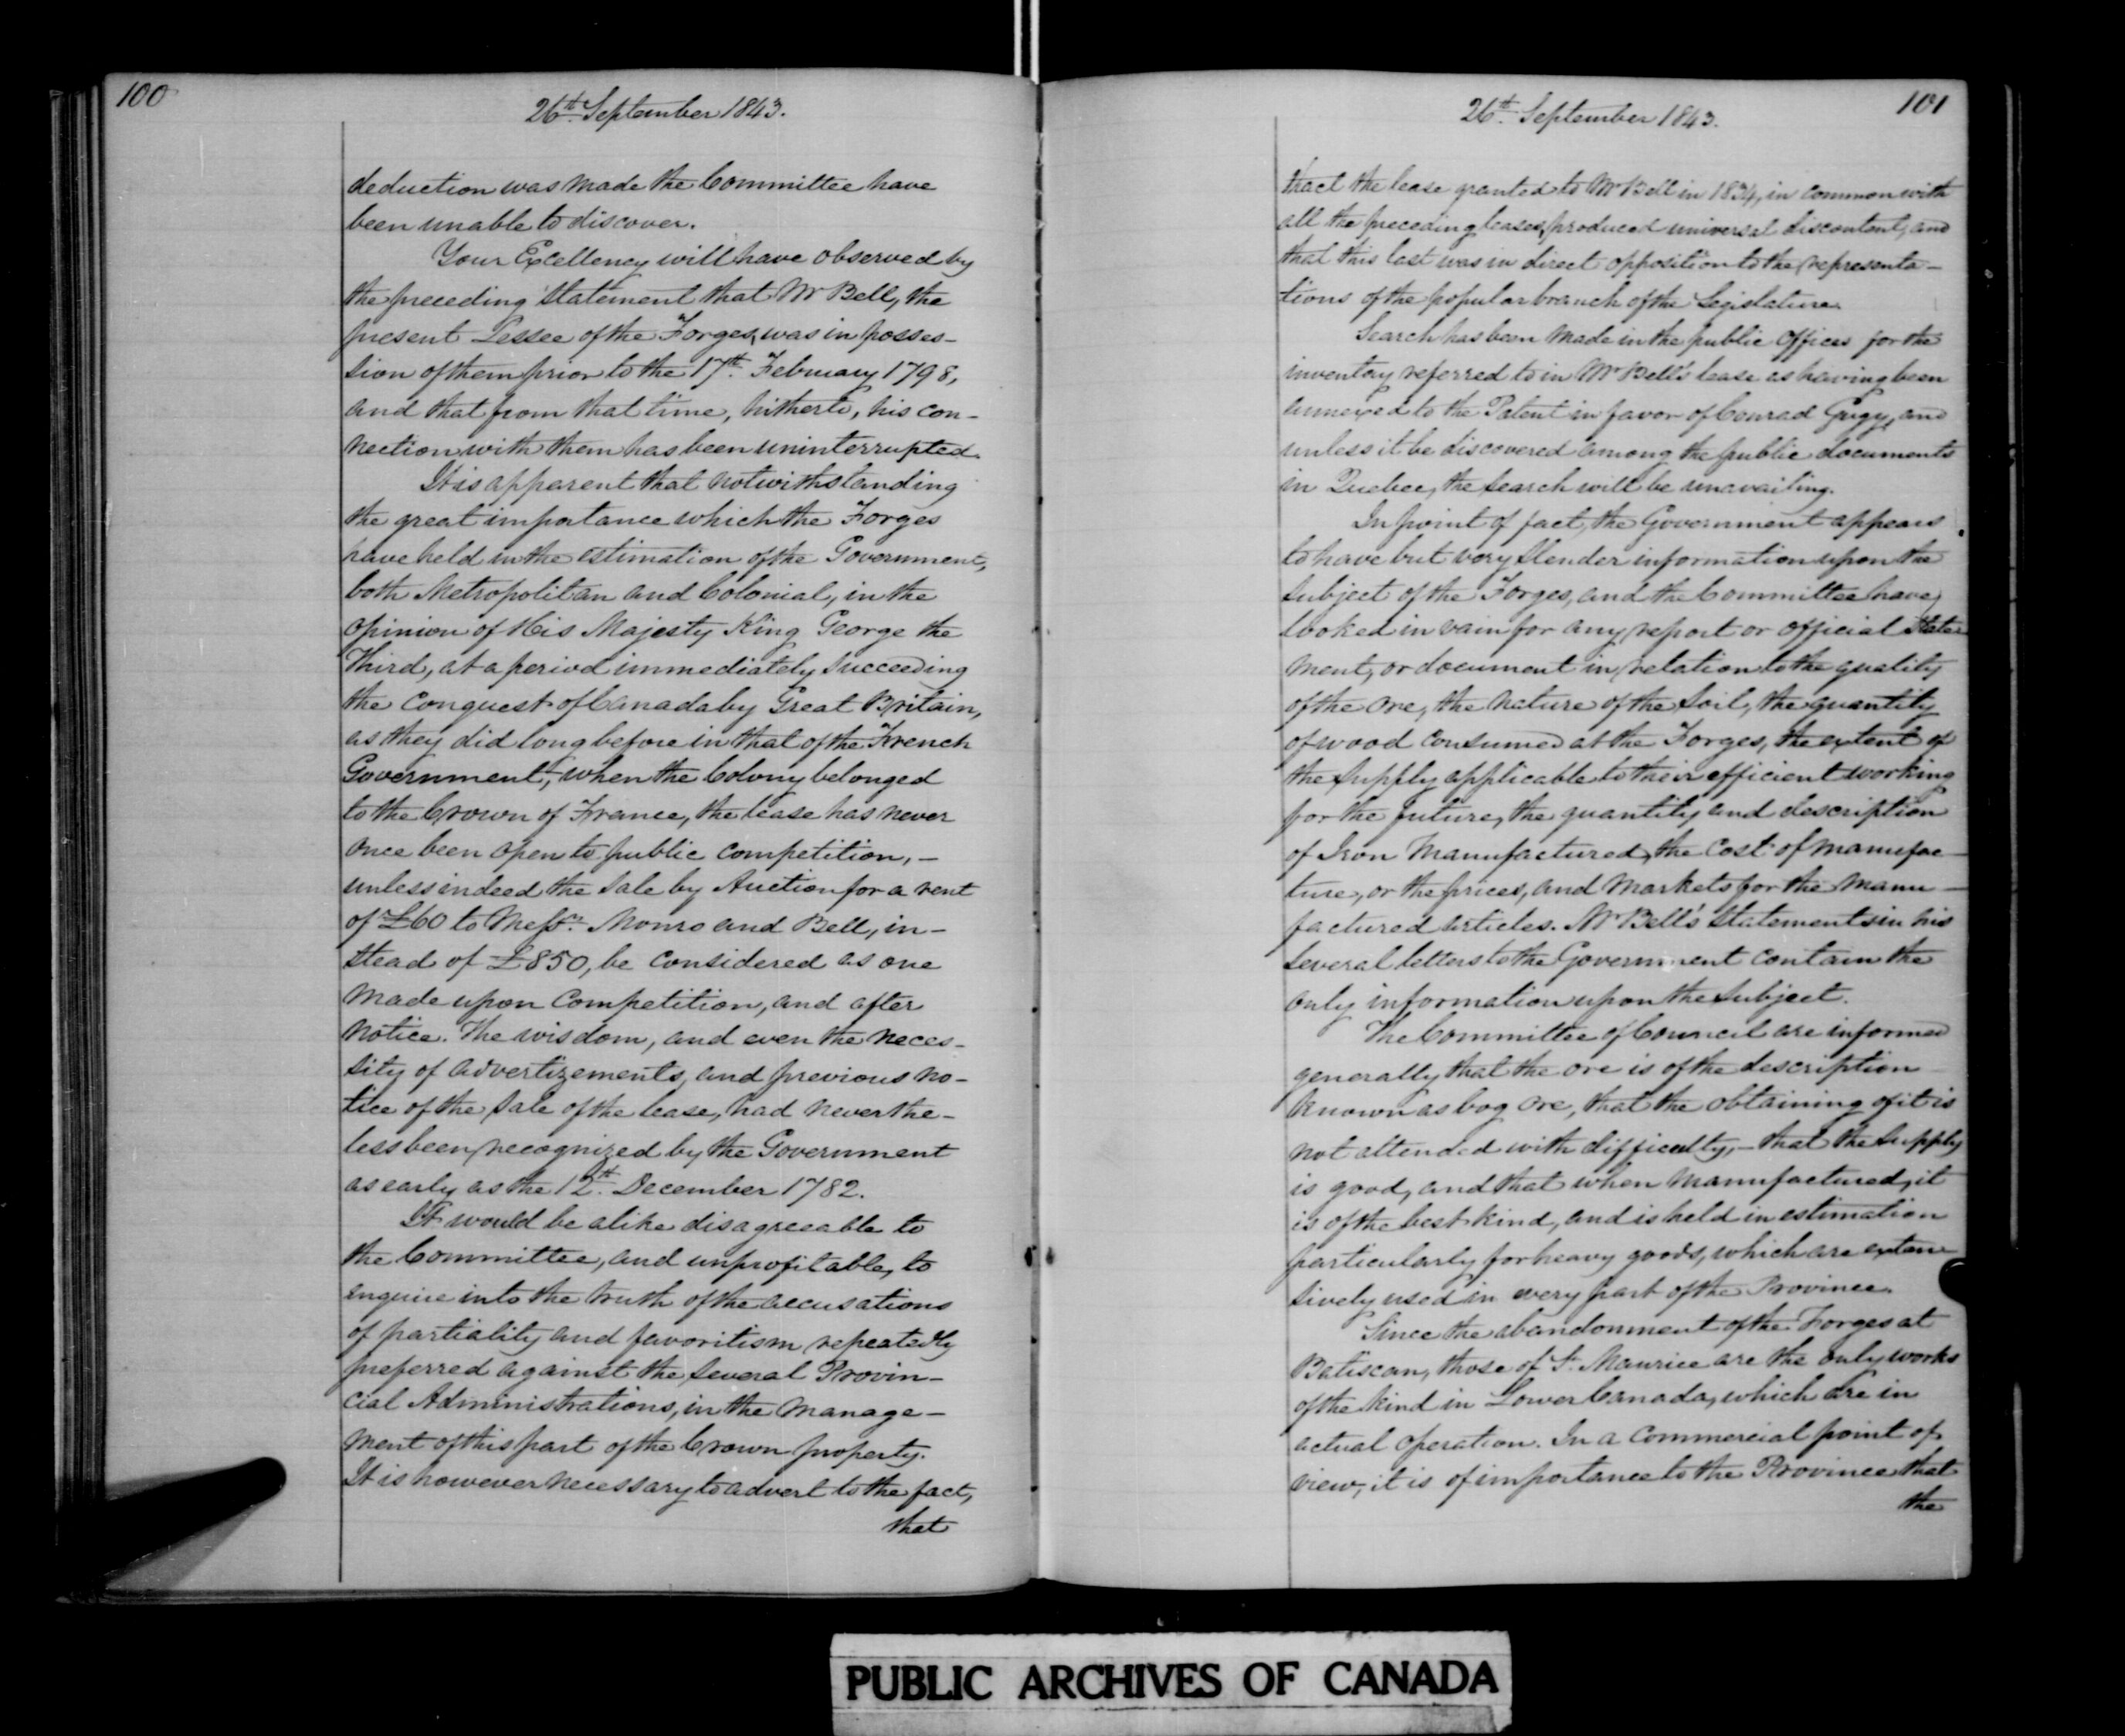 100
26th September 1843.
deduction was made the Committee have
been unable to discover.
Your Excellency will have observed by
the preceding statement that Mr Bell, the
present Lessee of the Forges, was in posses-
sion of them prior to the 17th February 1798,
and that from that time, hitherto, his con-
nection with them has been uninterrupted.
It is apparent that notwithstanding
the great importance which the Forges
have held in the estimation of the Government,
both Metropolitan and Colonial, in the
opinion of His Majesty King George the
Third, at a period immediately succeeding
the conquest of Canada by Great Britain,
as they did long before in that of the French
Government, when the Colony belonged
to the Crown of France, the lease has never
once been open to public competition, -
unless indeed the sale by Auction for a rent
of £60 to Messrs. Monro and Bell, in-
stead of £850, be considered as one
made upon competition, and after
notice. The wisdom, and even the neces-
sity of advertizements, and previous no-
tice of the sale of the lease, had neverthe-
less been recognized by the Government
as early as the 12th December 1782.
It would be alike disagreeable to
the Committee, and unprofitable, to
enquire into the truth of the accusations
of partiality and favoritism repeatedly
preferred against the several Provin-
cial Administrations, in the manage-
ment of this part of the Crown property.
It is however necessary to advert to the fact,
that
101
26th September 1843.
tract the lease granted to Mr Bell in 1834, in common with
all the preceding leases, produced universal discontent, and
that this last was in direct opposition to the representa-
tions of the popular branch of the Legislature.
Search has been made in the public Offices for the
inventory referred to in Mr Bell's lease as having been
annexed to the Patent in favor of Conrad Gugy, and
unless it be discovered among the public documents
in Quebec, the search will be unavailing.
In point of fact, the Government appears
to have but very slender information upon the
subject of the Forges, and the Committee have
looked in vain for any report or official state-
ment, or document in relation to the quality
of the ore, the nature of the soil, the quantity
of wood consumed at the Forges, the extent of
the supply applicable to their efficient working
for the future, the quantity and description
of Iron Manufactured, the cost of manufac-
ture, or the prices, and markets for the manu-
factured articles. Mr Bell's statements in his
several letters to the Government contain the
only information upon the subject.
The Committee of Council are informed
generally that the ore is of the description
known as bog ore, that the obtaining of it is
not attended with difficulty, - that the supply
is good, and that when manufactured, it
is of the best kind, and is held in estimation
particularly for heavy goods, which are exten-
sively used in every part of the Province.
Since the abandonment of the Forges at
Batiscan, those of St. Maurice are the only works
of the kind in Lower Canada, which are in
actual operation. In a commercial point of
view, it is of importance to the Province that
the
PUBLIC ARCHIVES OF CANADA